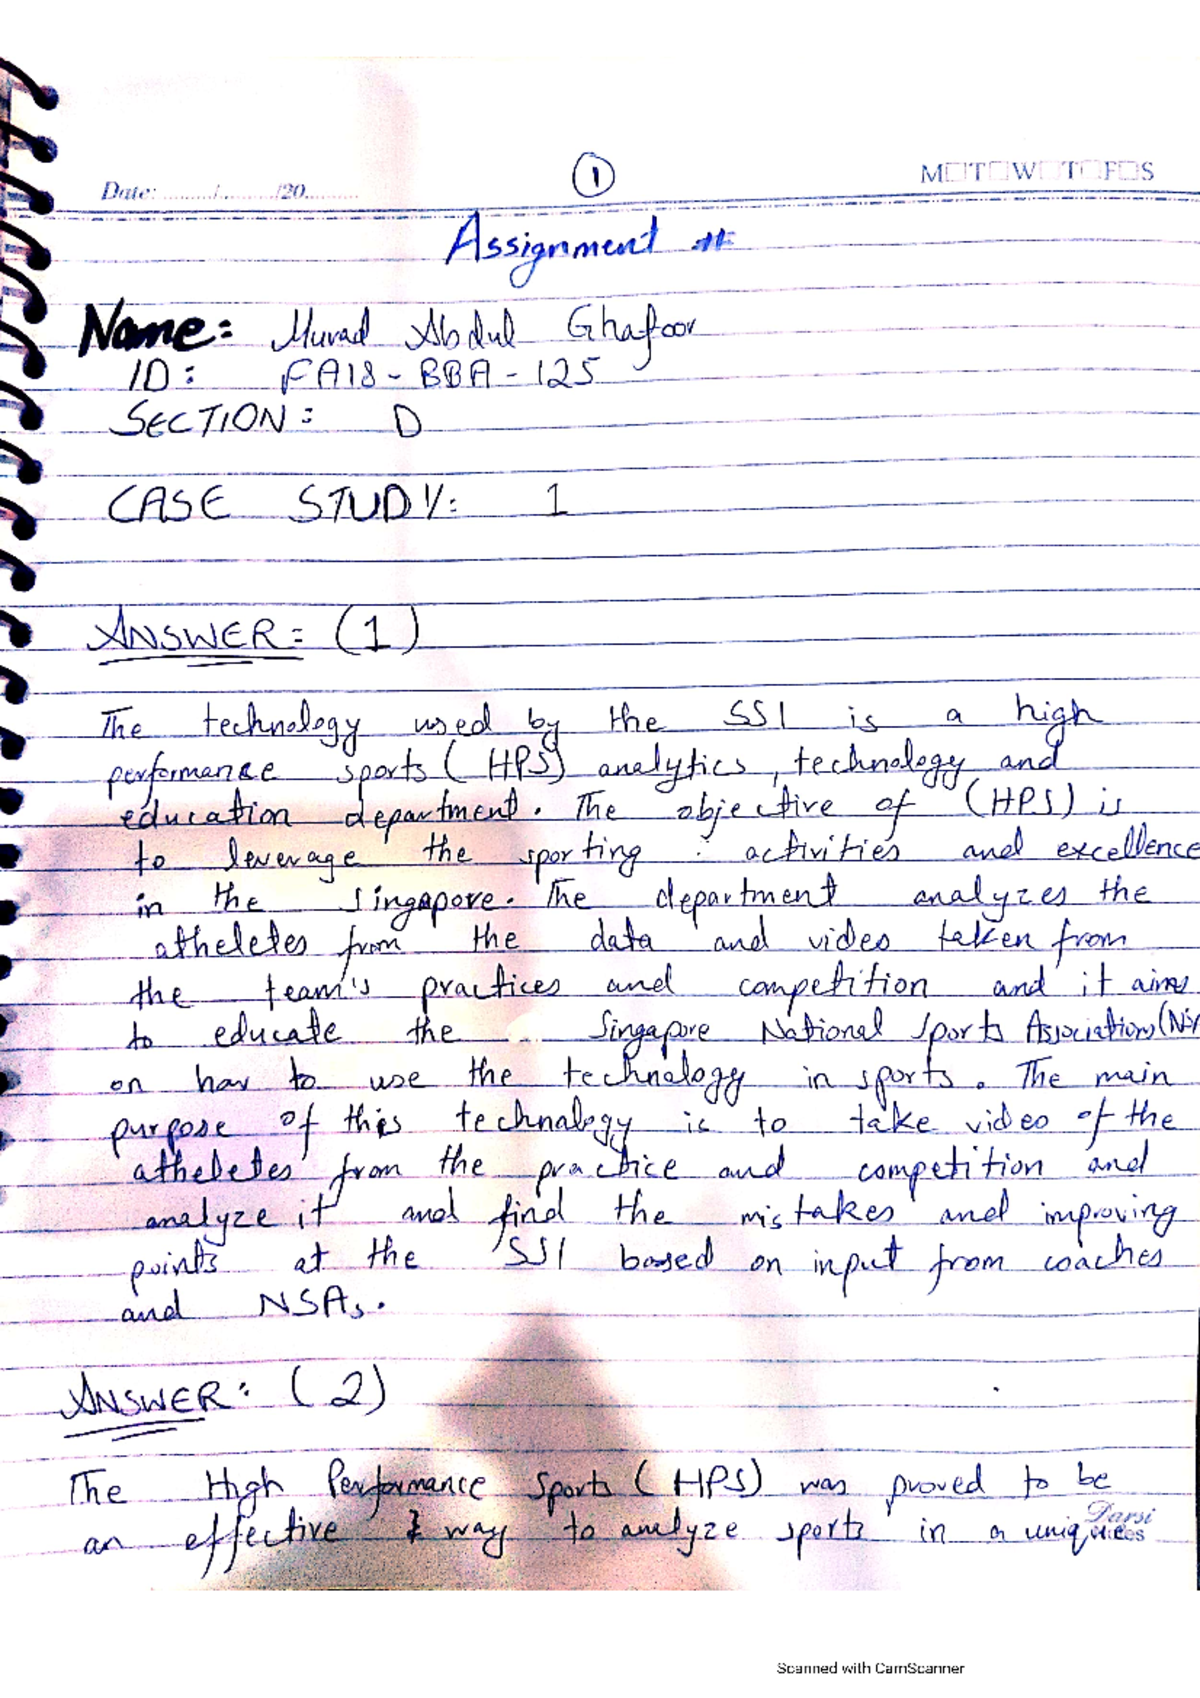 Date: ......./........./20.........
1
M T W T F S
Assignment #
Name: Murad Abdul Ghafoor
ID: FA18-BBA-125
SECTION: D
CASE STUDY: 1
ANSWER: (1)
The technology used by the SSI is a high
performance sports (HPS) analytics, technology and
education department. The objective of (HPS) is
to leverage the sporting activities and excellence
in the Singapore. The department analyzes the
atheletes from the data and video taken from
the team's practices and competition and it aims
to educate the Singapore National Sports Associations (NS
on how to use the technology in sports. The main
purpose of this technology is to take video of the
atheletes from the practice and competition and
analyze it and find the mistakes and improving
points at the SSI based on input from coaches
and NSAs.
ANSWER: (2)
The High Performance Sports (HPS) was proved to be
an effective way to analyze sports in a unique
Darsi
Scanned with CamScanner